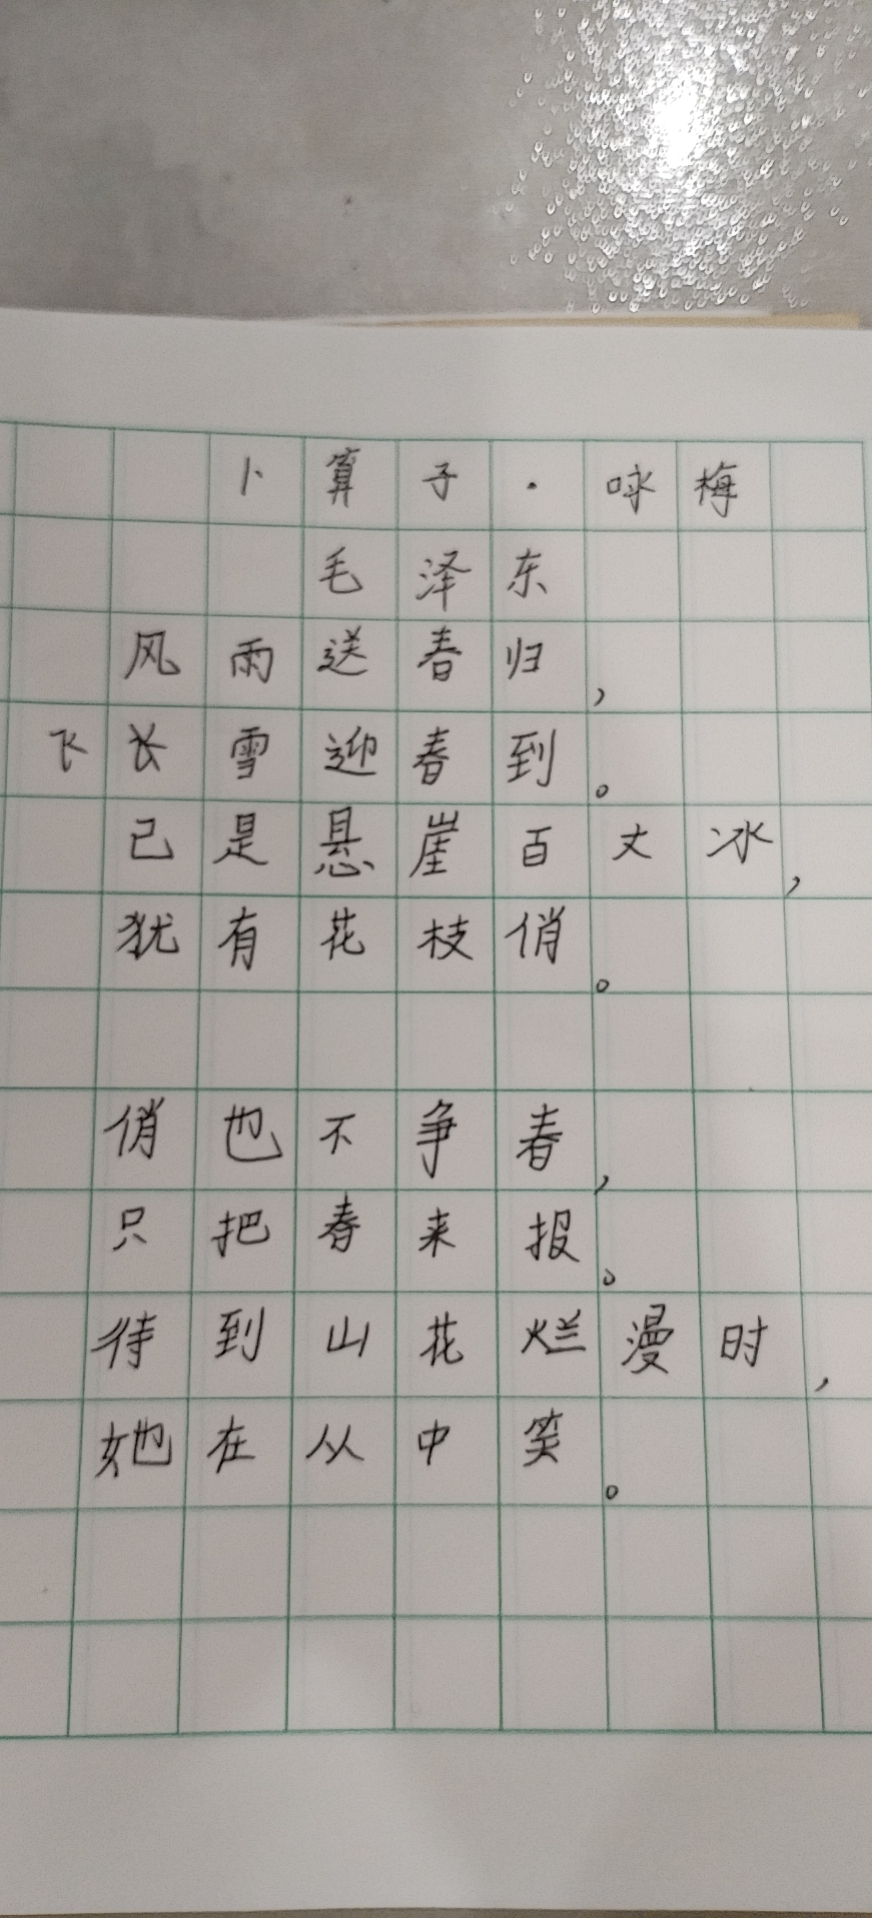 卜算子·咏梅
毛泽东
风雨送春归，
飞雪迎春到。
已是悬崖百丈冰，
犹有花枝俏。
俏也不争春，
只把春来报。
待到山花烂漫时，
她在丛中笑。